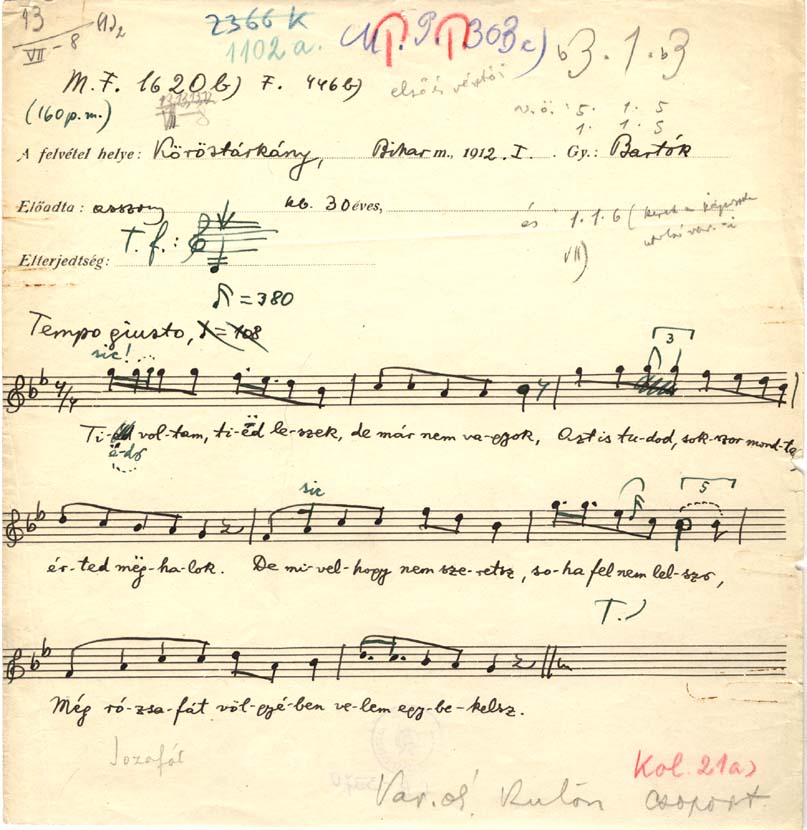 13
VII - 8
2366 K
1102 a.
M. P. P 303c)
b3 . 1 . b3
M. F. 1620 b) F. 446 b)
(160 p.m.)
5. 1. 5
1. 1. 5
A felvétel helye: Köröstárkány, Bihar m., 1912. I. Gy.: Bartók
Előadta: asszony kb. 30 éves,
és 1. 1. 6 (
VII)
Elterjedtség: T. f.:
♪ = 380
Tempo giusto, ♪ = 108
sic!
3
4/4
Ti- vol-tam, ti-ëd le-szek, de már nem va-gyok, Azt is tu-dod, sok-szor mond-ta
ë-dö
sic
5
ér-ted mëg-ha-lok. De mi-vel-hogy nem sze-retsz, so-ha fel nem lelsz,
T.)
Még ró-zsa-fát völ-gyé-ben ve-lem egy-be-kelsz.
Jozafát
Kol. 21a)
Var. ol. Rutén csoport.